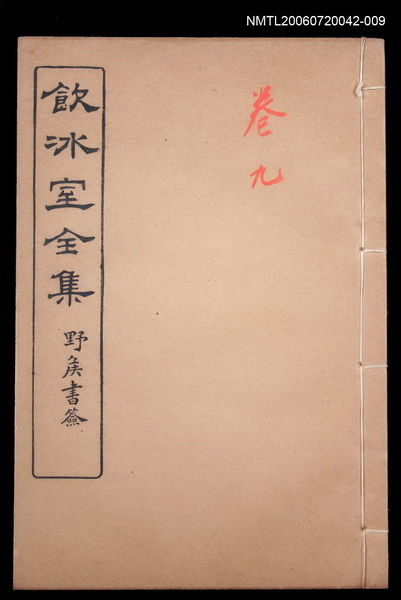 NMTL20060720042-009
卷九
飲冰室全集
野矦書籤